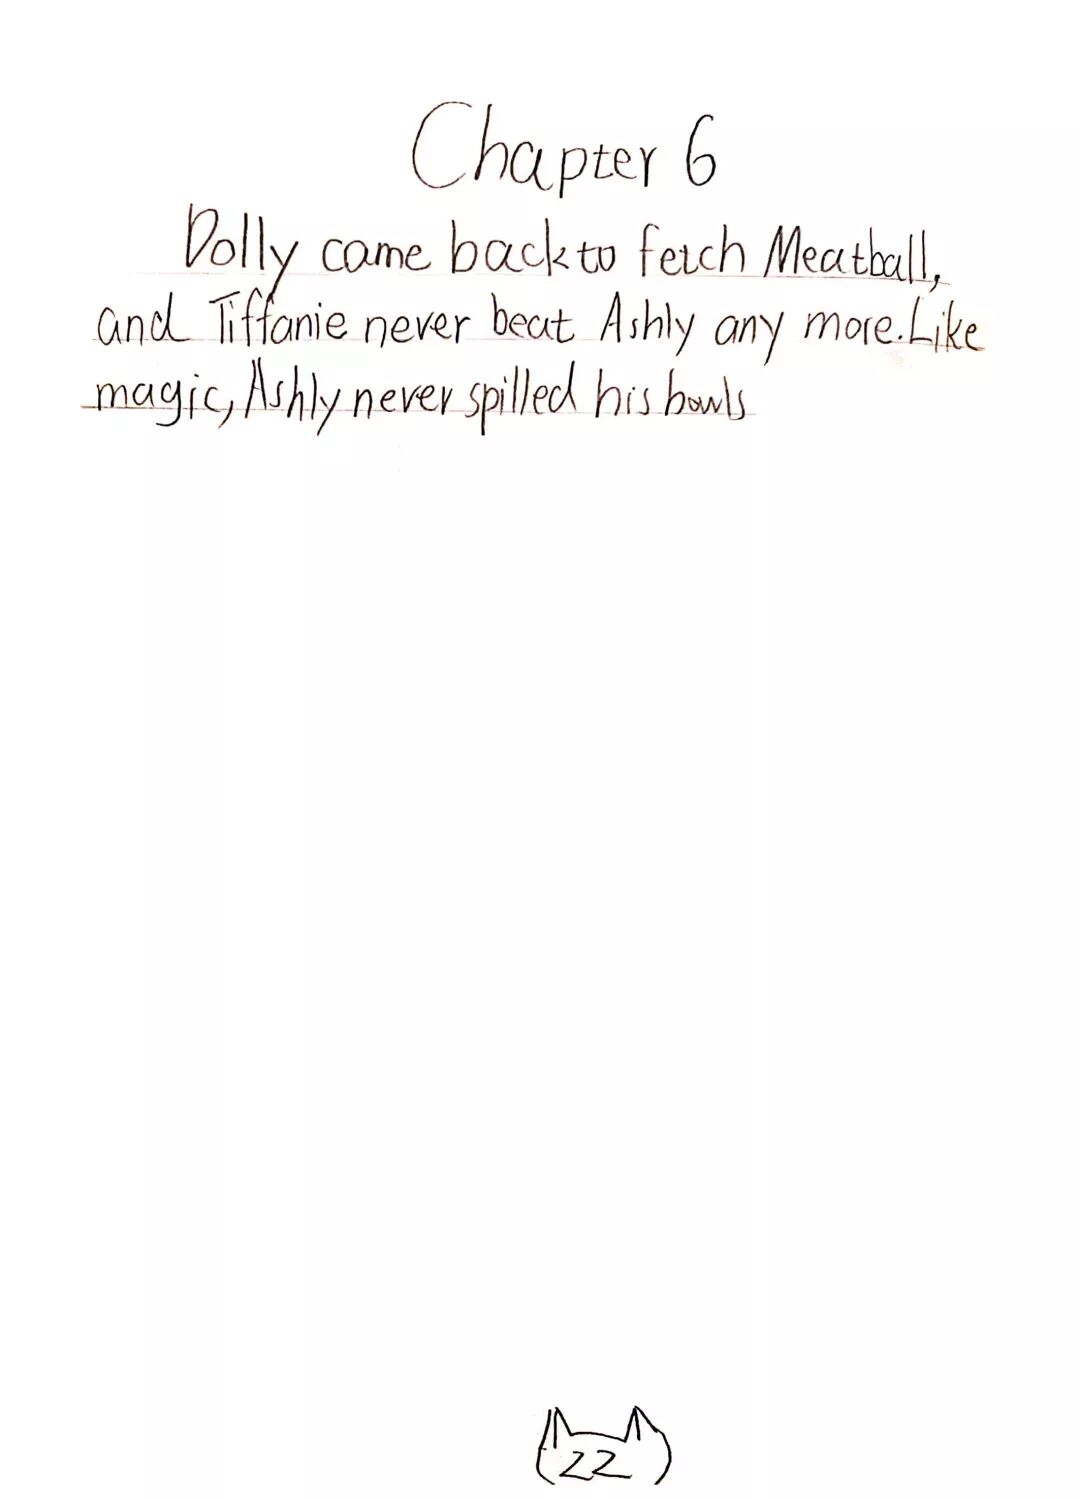 Chapter 6
Dolly came back to fetch Meatball,
and Tiffanie never beat Ashly any more. Like
magic, Ashly never spilled his bowls
22